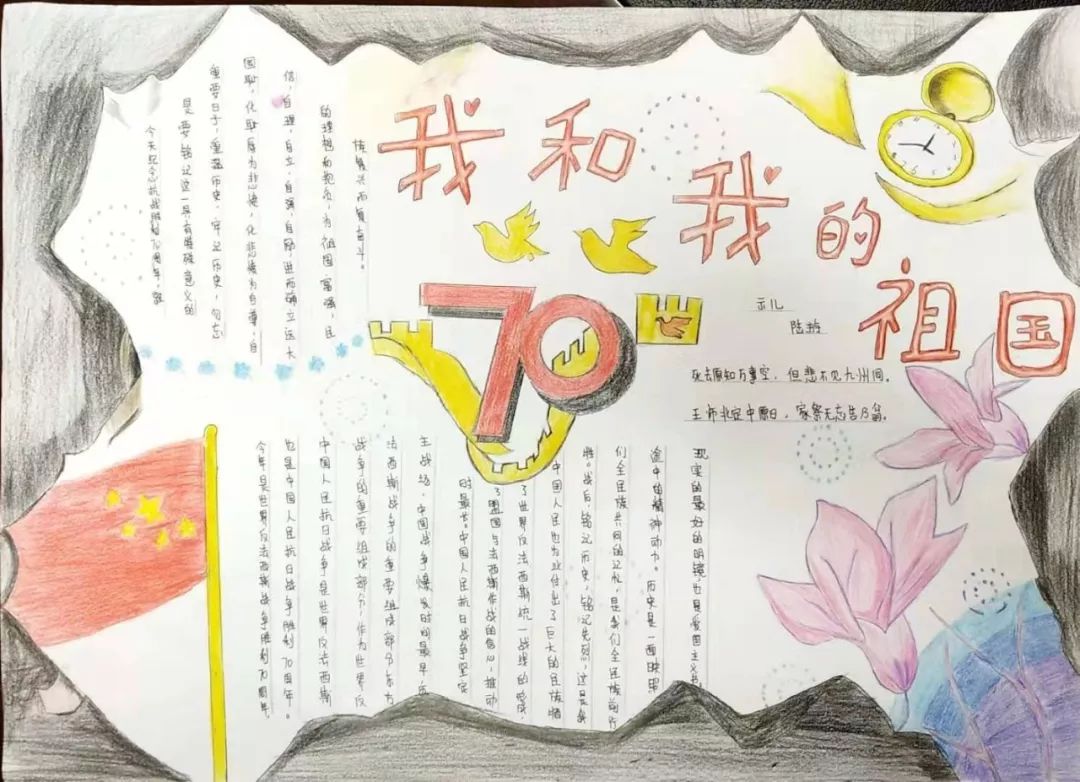 我和我的祖国
70
今天纪念抗战胜利70周年，就
是要铭记这一具有特殊意义的
重要日子，重温历史，牢记历史，勿忘
国耻，化耻辱为悲愤，化悲愤为自尊，自
信，自理，自立，自强，自励，进而确立远大
的理想和抱负，为祖国富强，民
族复兴而奋斗。
示儿
陆游
死去原知万事空，但悲不见九州同。
王师北定中原日，家祭无忘告乃翁。
今年是世界反法西斯战争胜利70周年
也是中国人民抗日战争胜利70周年。
中国人民抗日战争是世界反法西斯
战争的重要组成部分，作为世界反
法西斯战争的重要组成部分东方
主战场，中国战争爆发时间最早，历
时最长。中国人民抗日战争坚定
了盟国与法西斯作战的信心，推动
了世界反法西斯统一战线的
中国人民也为此付出了巨大的民族牺
牲。战后，铭记历史，铭记先烈，这是我
们全民族共同的记忆，是我们全民族前行
途中精神动力。历史是一面映照
现实的最好的明镜，也是爱国主义